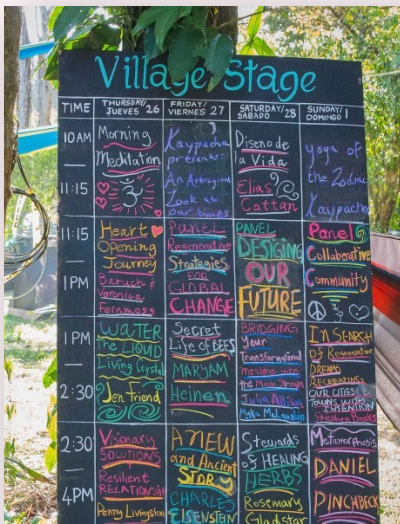 Village Stage
TIME
THURSDAY/
JUEVES 26
FRIDAY/
VIERNES 27
SATURDAY/
SABADO 28
SUNDAY/
DOMINGO 1
10AM
—
11:15
Morning
Meditation
ॐ
Kaypacha
presents:
An Astrological
Look at
our times
Diseno de
la Vida
Elias
Cattan
yoga of
the Zodiac
Kaypacha
11:15
—
1PM
Heart
Opening
Journey
Baruch &
Veronica
Fernmoss
Panel
Regenerative
Strategies
FOR
GLOBAL
CHANGE
PANEL
DESIGING
OUR
FUTURE
Panel
Collaborative
Community
1PM
—
2:30
WATER
THE LIQUID
Living Crystal
Jen Friend
Secret
Life of BEES
MARYAM
Heinen
BRIDGING
your
Transformational
message into
the Main Stream
Julia Allison
Myka McLaughlin
IN SEARCH
Of Regenerative
DREAMS
RECREATING
OUR CITIES &
TOWNS WITH
INTENTION
Stephen Brooks
2:30
—
4PM
Visionary
SOLUTIONS
Resilient
RELATIONSHIP
Penny Livingston
A NEW
and Ancient
STORY
CHARLES
EISENSTEIN
Stewards
OF HEALING
HERBS
Rosemary
Gladstar
Metamorphosis
DANIEL
PINCHBECK